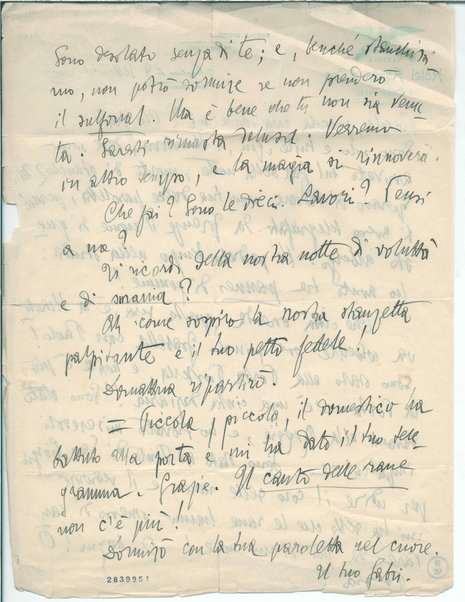 Sono desolato senza di te; e, benché stanchissi
mo, non potrò dormire se non prenderò
il sulfonal. Ma è bene che tu non sia venu
ta. Saresti rimasta delusa. Verremo
in altro tempo, e la magia si rinnoverà.
Che fai? Sono le dieci. Lavori? Pensi
a me?
Ti ricordi della nostra notte di voluttà
e di smania?
Ah come sospiro la nostra stanzetta
palpitante e il tuo petto fedele!
Domattina ripartirò.
= Piccola, piccola, il domestico ha
battuto alla porta e mi ha dato il tuo tele
gramma. Grazie. Il canto delle rane
non c'è più!
Dormirò con la tua paroletta nel cuore.
Il tuo Gabri.
2839951